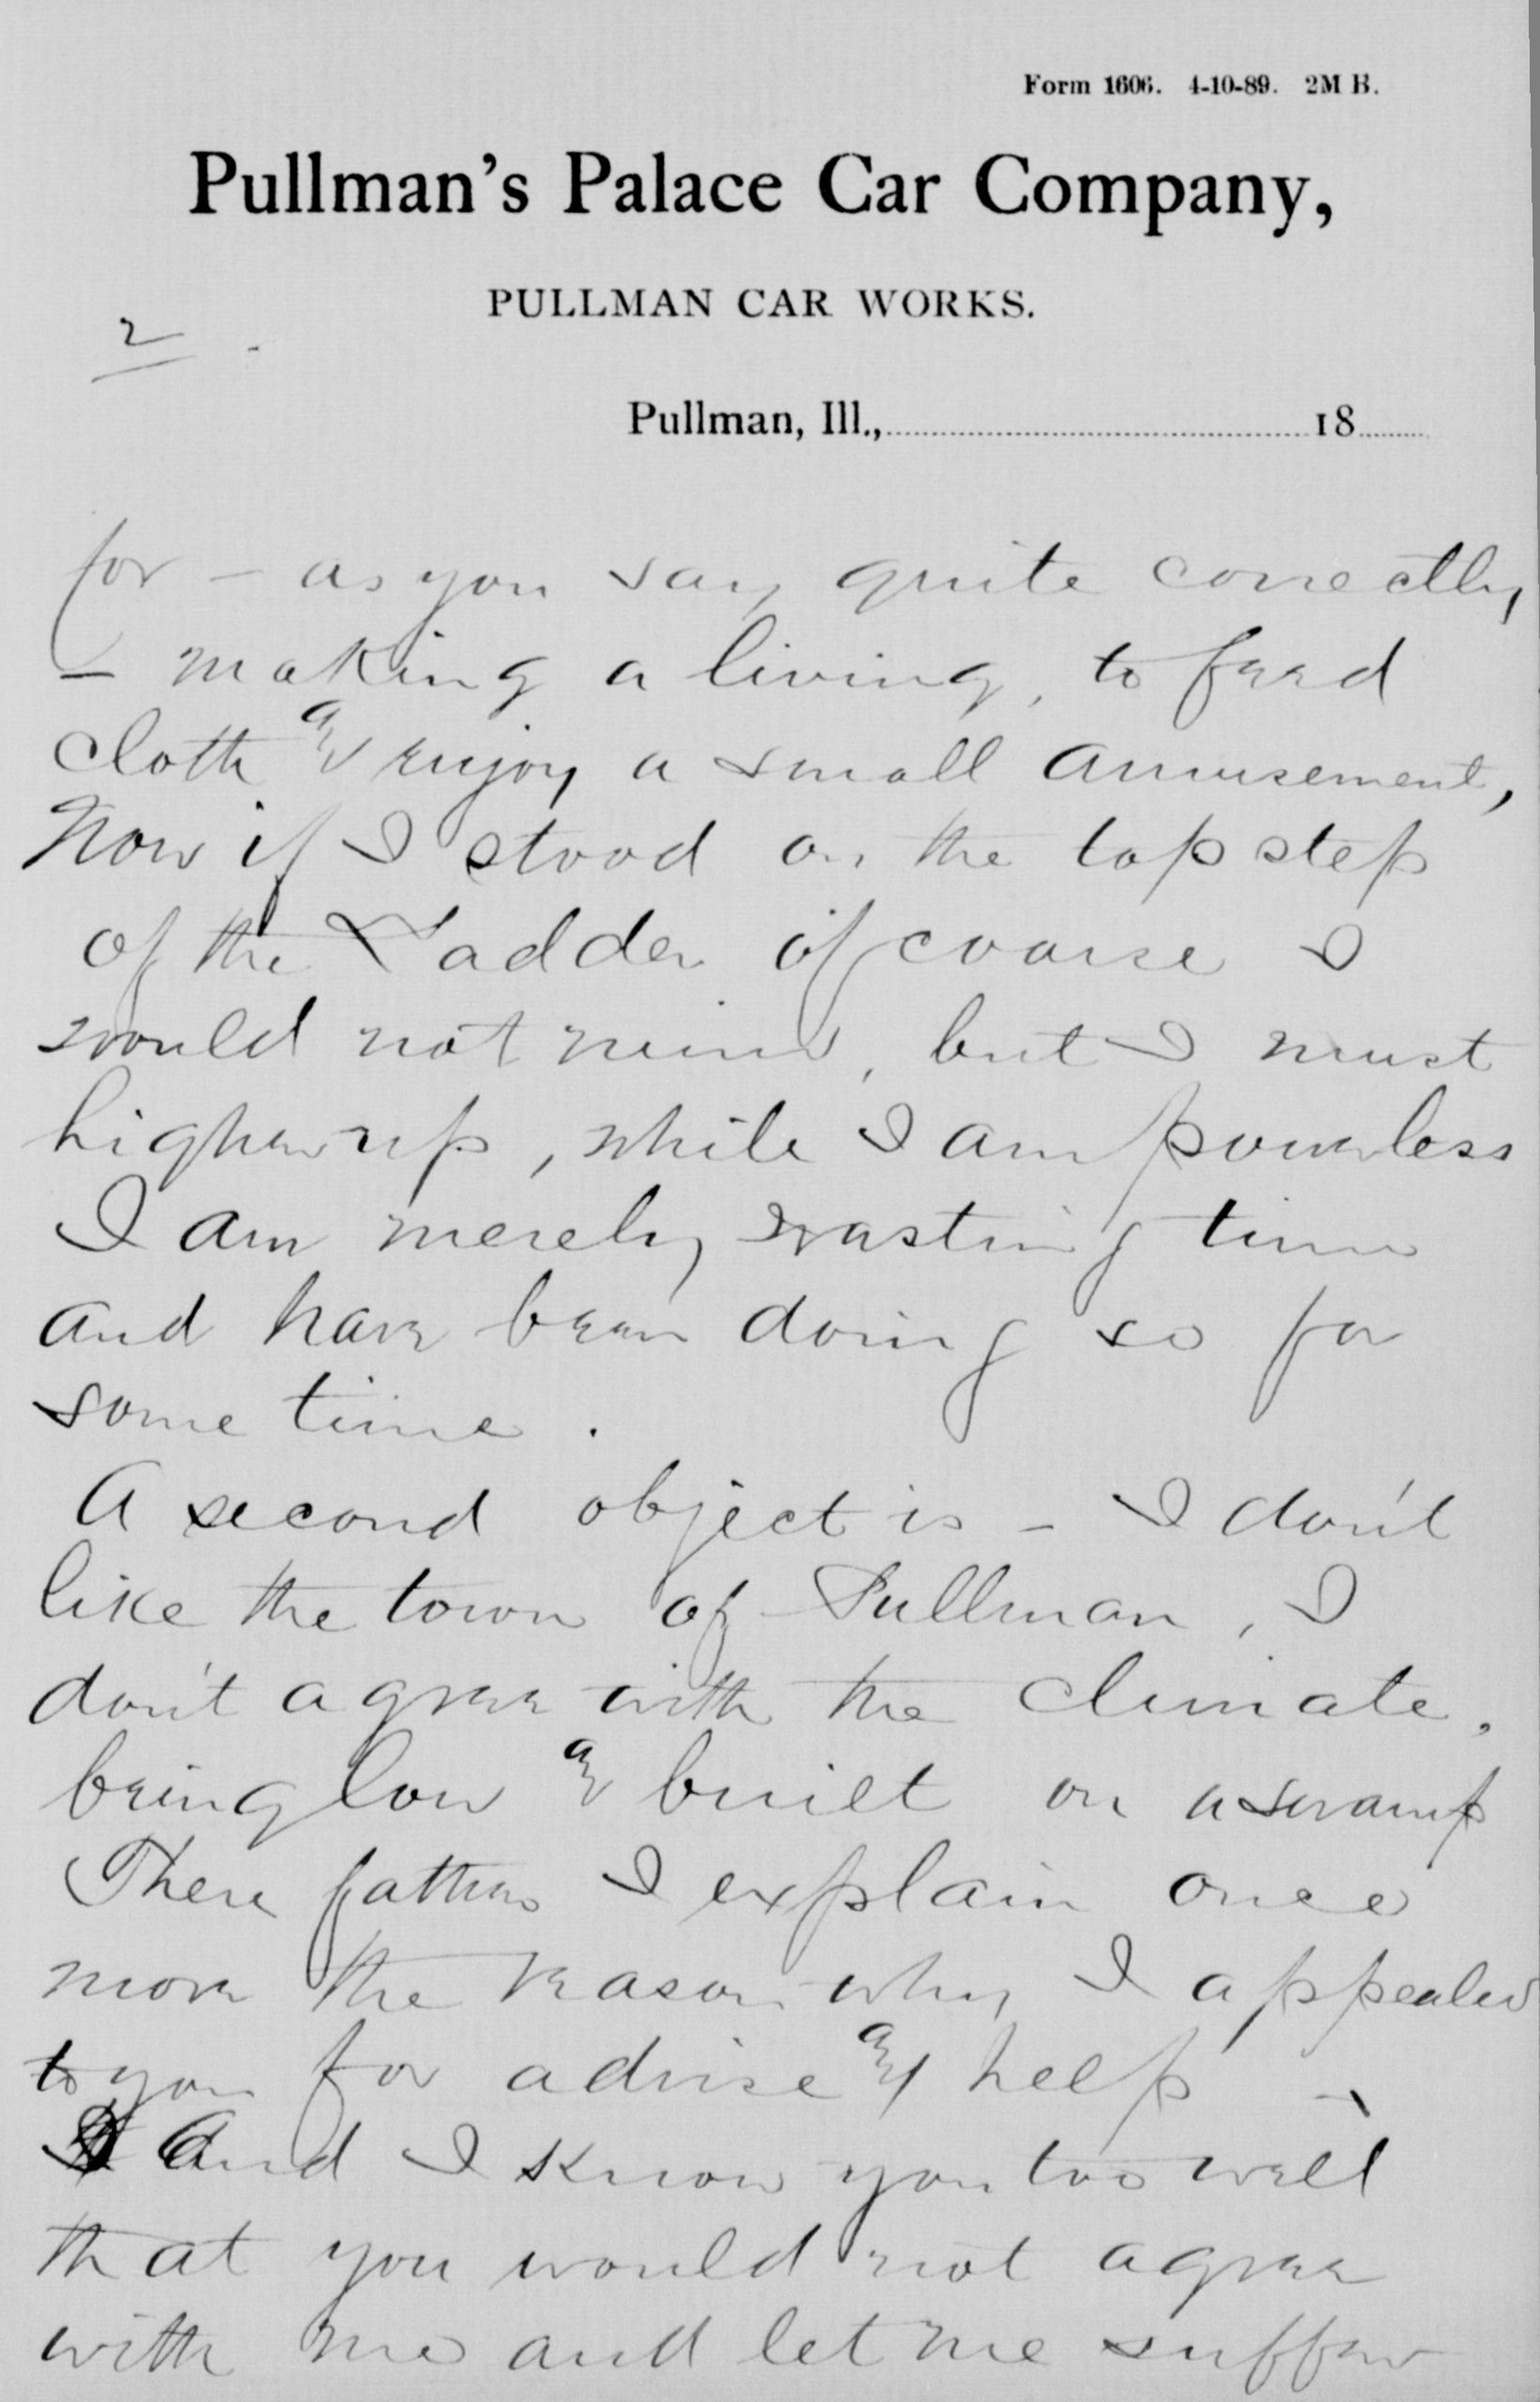 Form 1606. 4-10-89. 2M B.
Pullman's Palace Car Company,
PULLMAN CAR WORKS.
2
Pullman, Ill., 18
for – as you say quite correctly
– making a living, to feed
cloth & enjoy a small amusement,
Now if I stood on the top step
of the Ladder of coarse I
would not mind, but I must
higher up, while I am powerless
I am merely wasting time
and have been doing so for
some time.
A second object is – I don't
like the town of Pullman, I
don't agree with the climate,
being low & built on a swamp
There father I explain once
more the reason why I appealed
to you for advise & help –
And I know you too well
that you would not agree
with me and let me suffer